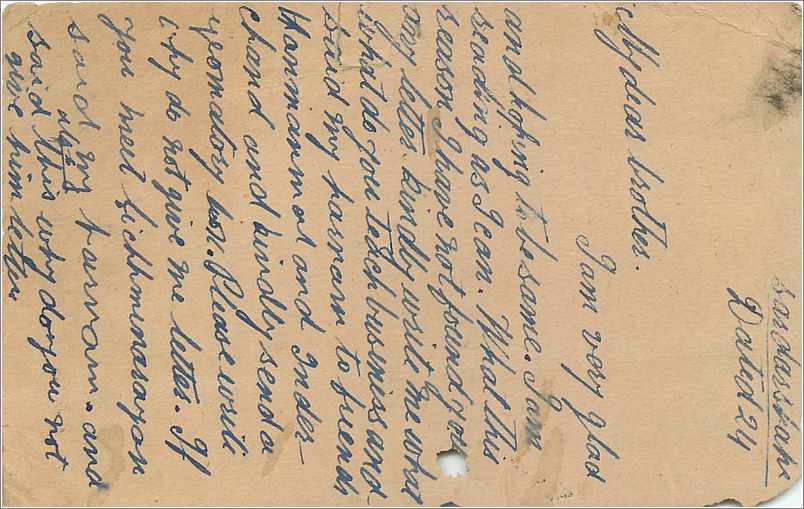 Sardarshahr
Dated 24
My dear brother.
I am very glad
and hoping to be same. I am
reading as I can. What this
reason I have not found you
any letter. kindly write me what
what do you teach business and
said my parnam to friends
Hanmanmal and Inder-
chand and kindly send a
geomatory box. Please write
why do not give me letter. If
You meet Lichhminarayan
said my parnam. and
also
said this why do you not
give him letter